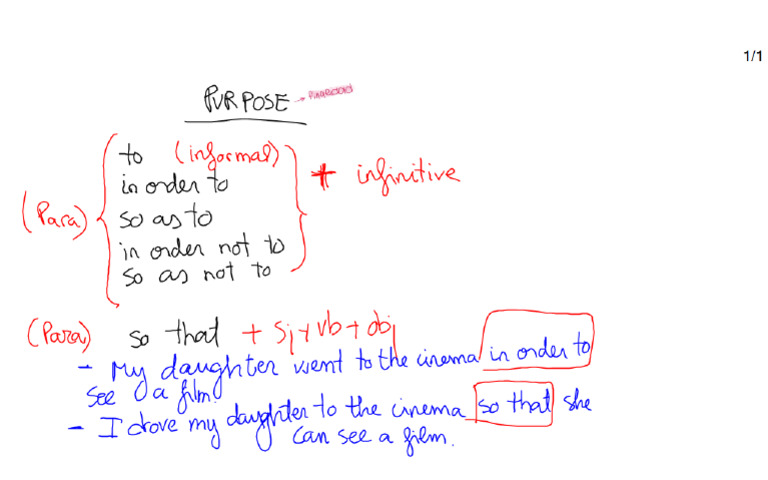 1/1
PURPOSE →
to (informal)
in order to
so as to
in order not to
so as not to
(Para)
+ infinitive
(Para) so that + Sj + vb + obj
- My daughter went to the cinema in order to
see a film.
- I drove my daughter to the cinema so that she
can see a film.